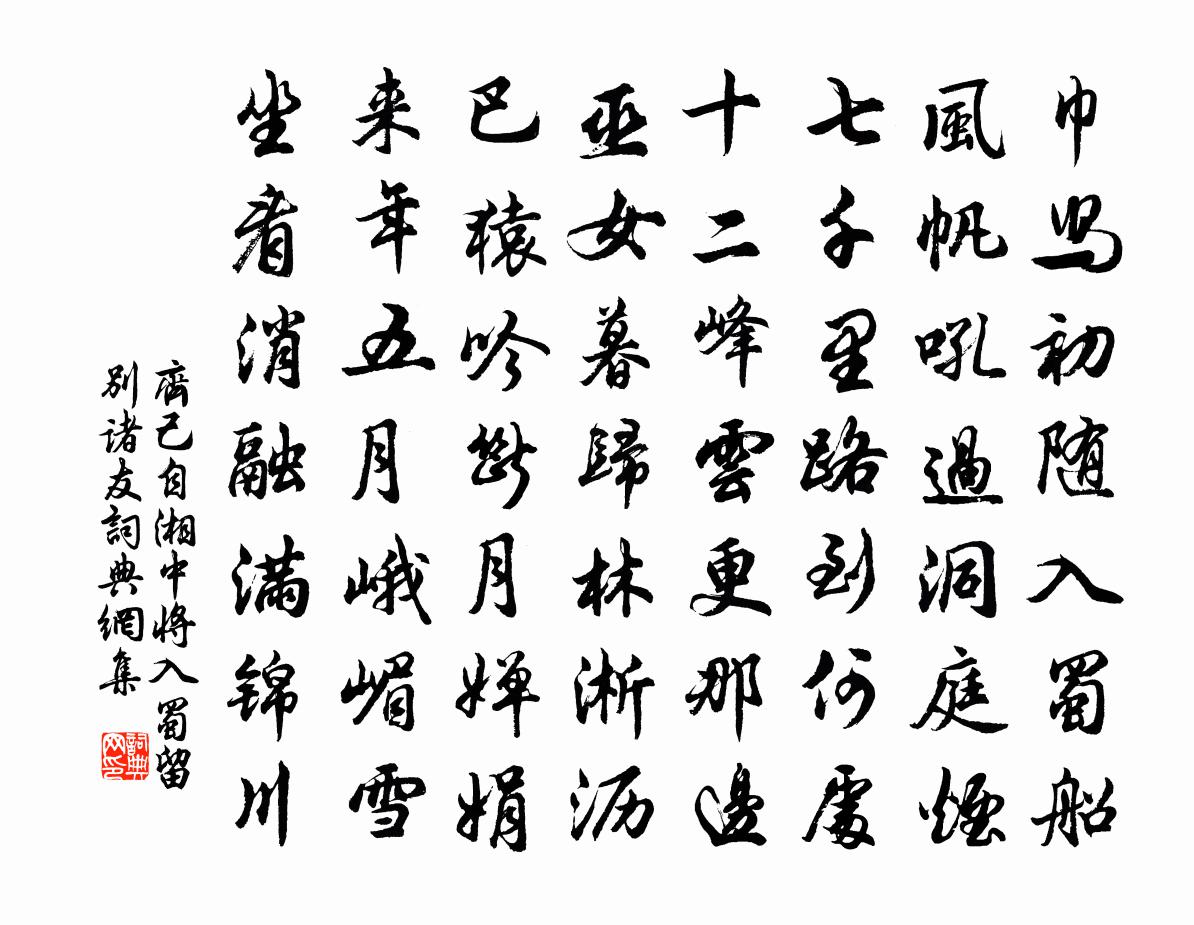 巾舄初随入蜀船
風帆吼過洞庭煙
七千里路到何處
十二峰雲更那邊
巫女暮歸林淅沥
巴猿吟斷月婵娟
来年五月峨嵋雪
坐看消融满锦川
齊己自湘中将入蜀留
别诸友詞典網集
詞典
网印